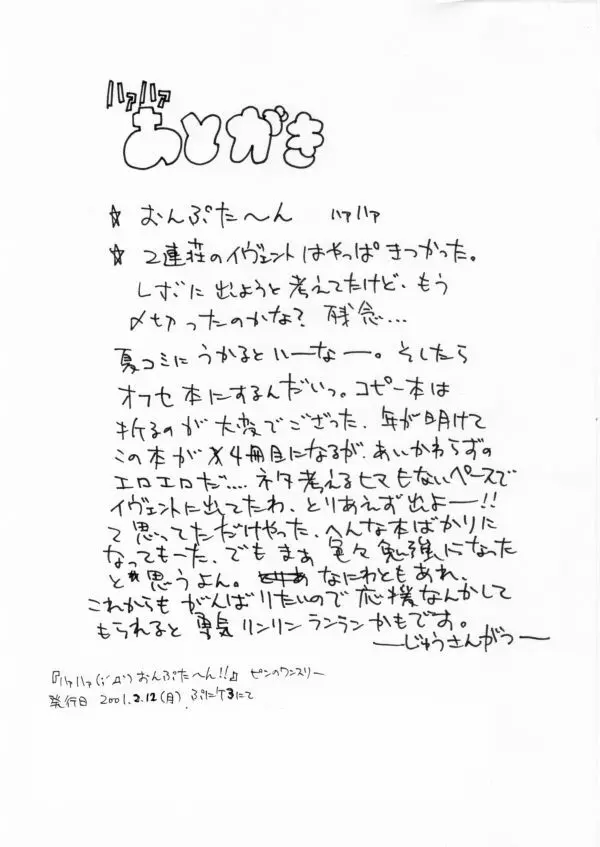 ハァハァ
あとがき
☆ おんぷた〜ん ハァハァ
☆ 2連荘のイヴェントはやっぱきつかった。
レボに出ようと考えてたけど、もう
〆切ったのかな? 残念...
夏コミにうかるといーなー。そしたら
オフセ本にするんだいっ。コピー本は
折るのが大変でござった、年が明けて
この本が4冊目になるが、あいかわらずの
エロエロだ....ネタ考えるヒマもないペースで
イヴェントに出てたわ、とりあえず出よー!!
て思ってただけやった、へんな本ばかりに
なってもーた、でもまぁ色々勉強になった
と思うよん。なにわともあれ、
これからもがんばりたいので応援なんかして
もられると勇気リンリンランランかもです。
ーじゅうさんがつー
『ハァハァ(;´Д`)おんぷた〜ん!!』ピンのワンスリー
発行日 2001.2.12(月) ぷにケ3にて